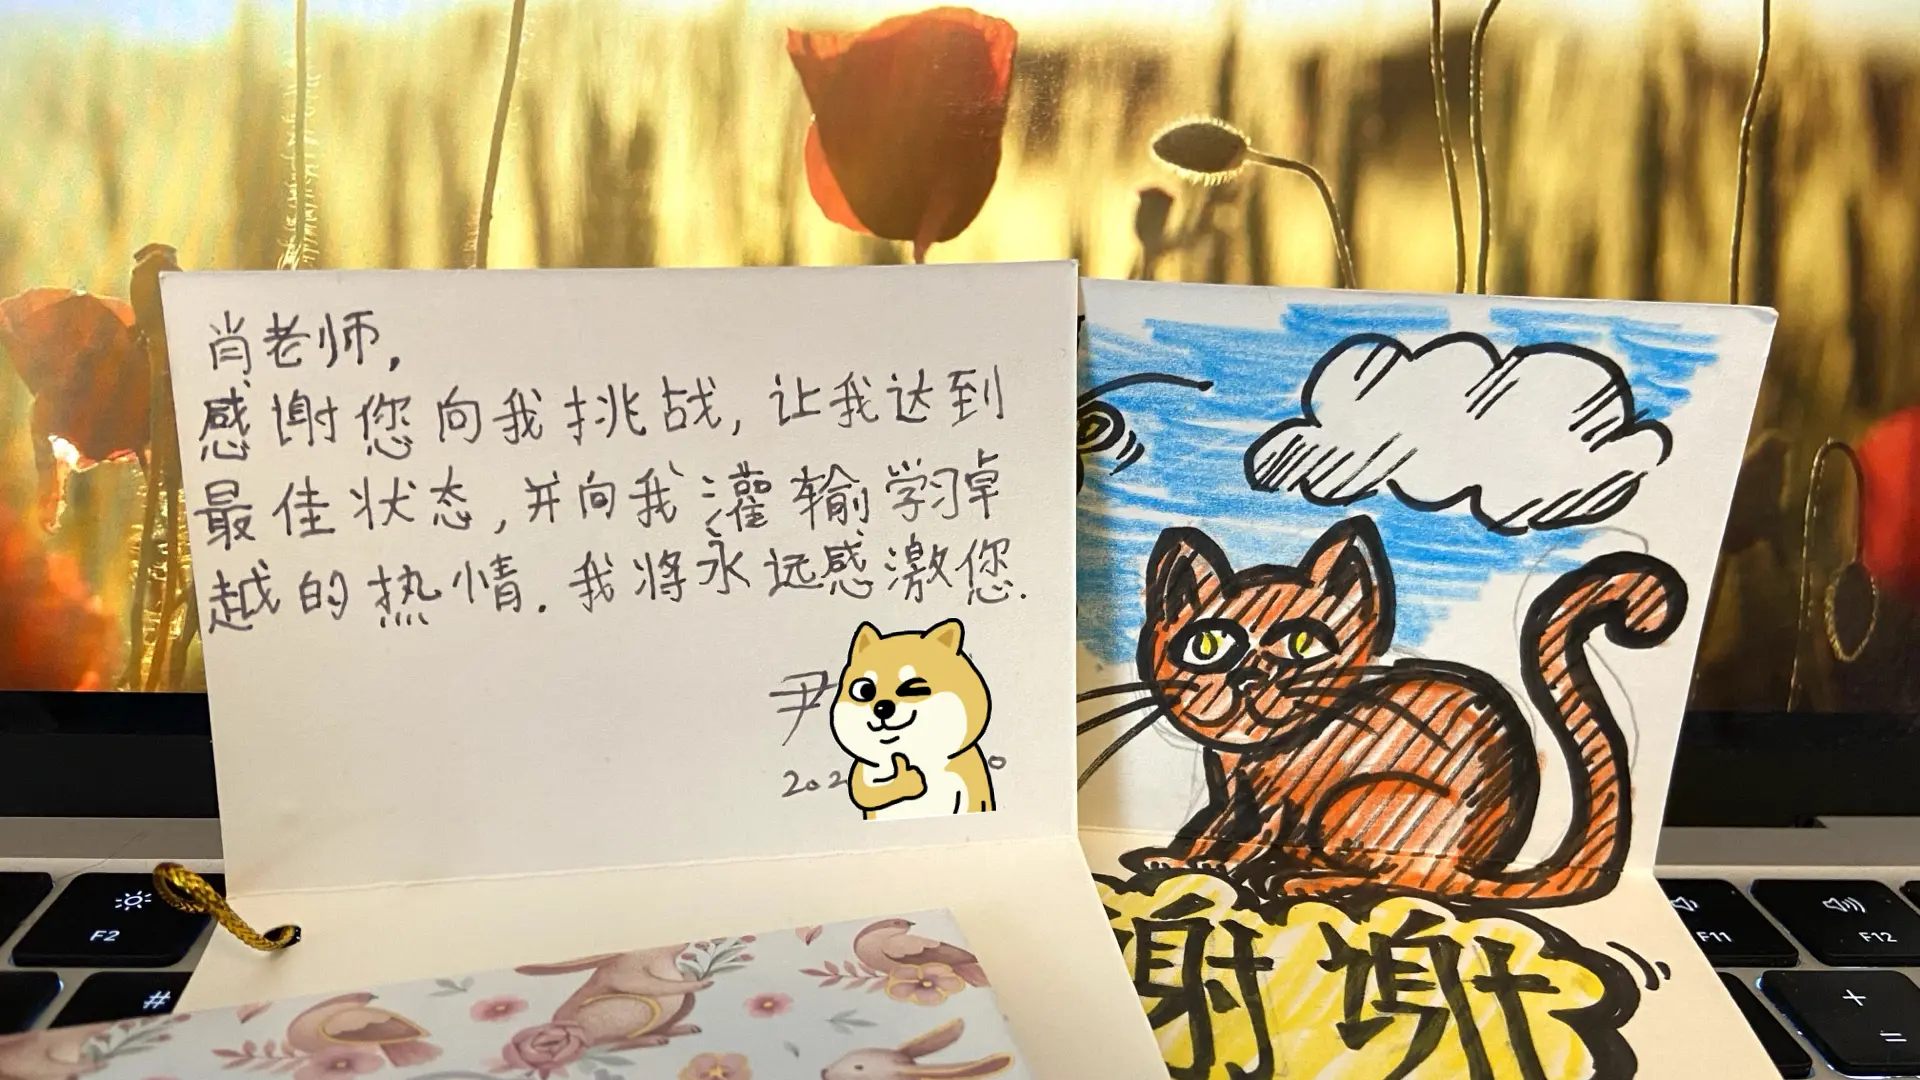 肖老师,
感谢您向我挑战,让我达到
最佳状态,并向我灌输学习卓
越的热情.我将永远感激您.
尹
202
谢谢
F2
#
F11
F12
+
=